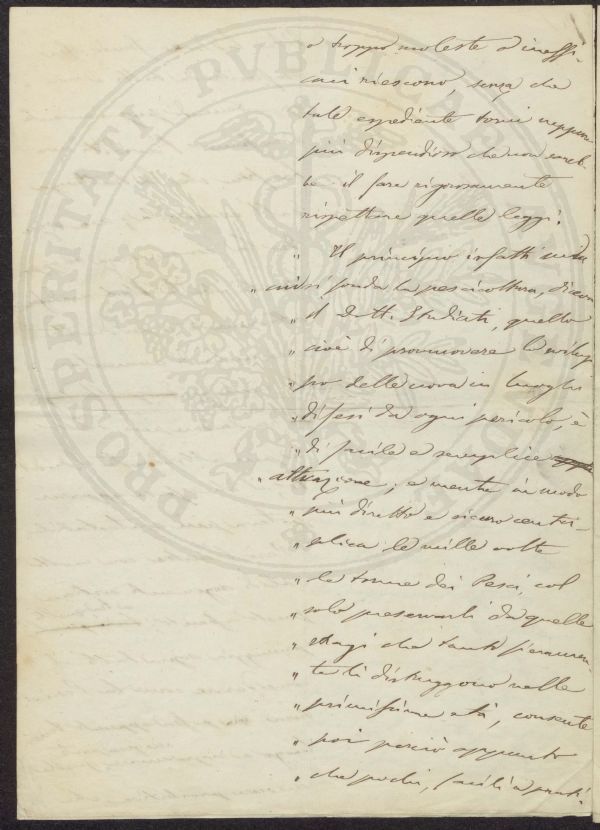 o troppo moleste od ineffi-
caci riescono, senza che
tale espediente torni neppure
più dispendioso che non sareb-
be il fare rigorosamente
rispettare quelle leggi:
„ Il principio infatti su di
„ cui si fonda la pescicoltura, dicono
„ il Dott. Studiati, quello
„ cioè di promuovere lo svilup
„ po delle uova in luoghi
„ difesi da ogni pericolo, è
„ di facile e semplice
„ attuazione; e mentre in modo
„ più diretto e sicuro centu-
„ plica le mille volte
„ le torme dei Pesci, col
„ solo preservarli da quelle
„ stragi che tanto
„ li distruggono nelle
„ primissime età, consente
„ poi perciò appunto
„ che pochi, facili a prati-
PROSPERITATI PUBLICAE